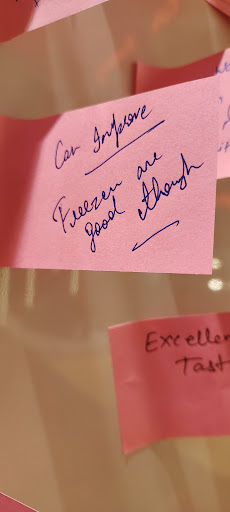 Can Improve
Freezen are
good though
Excellen
Tast